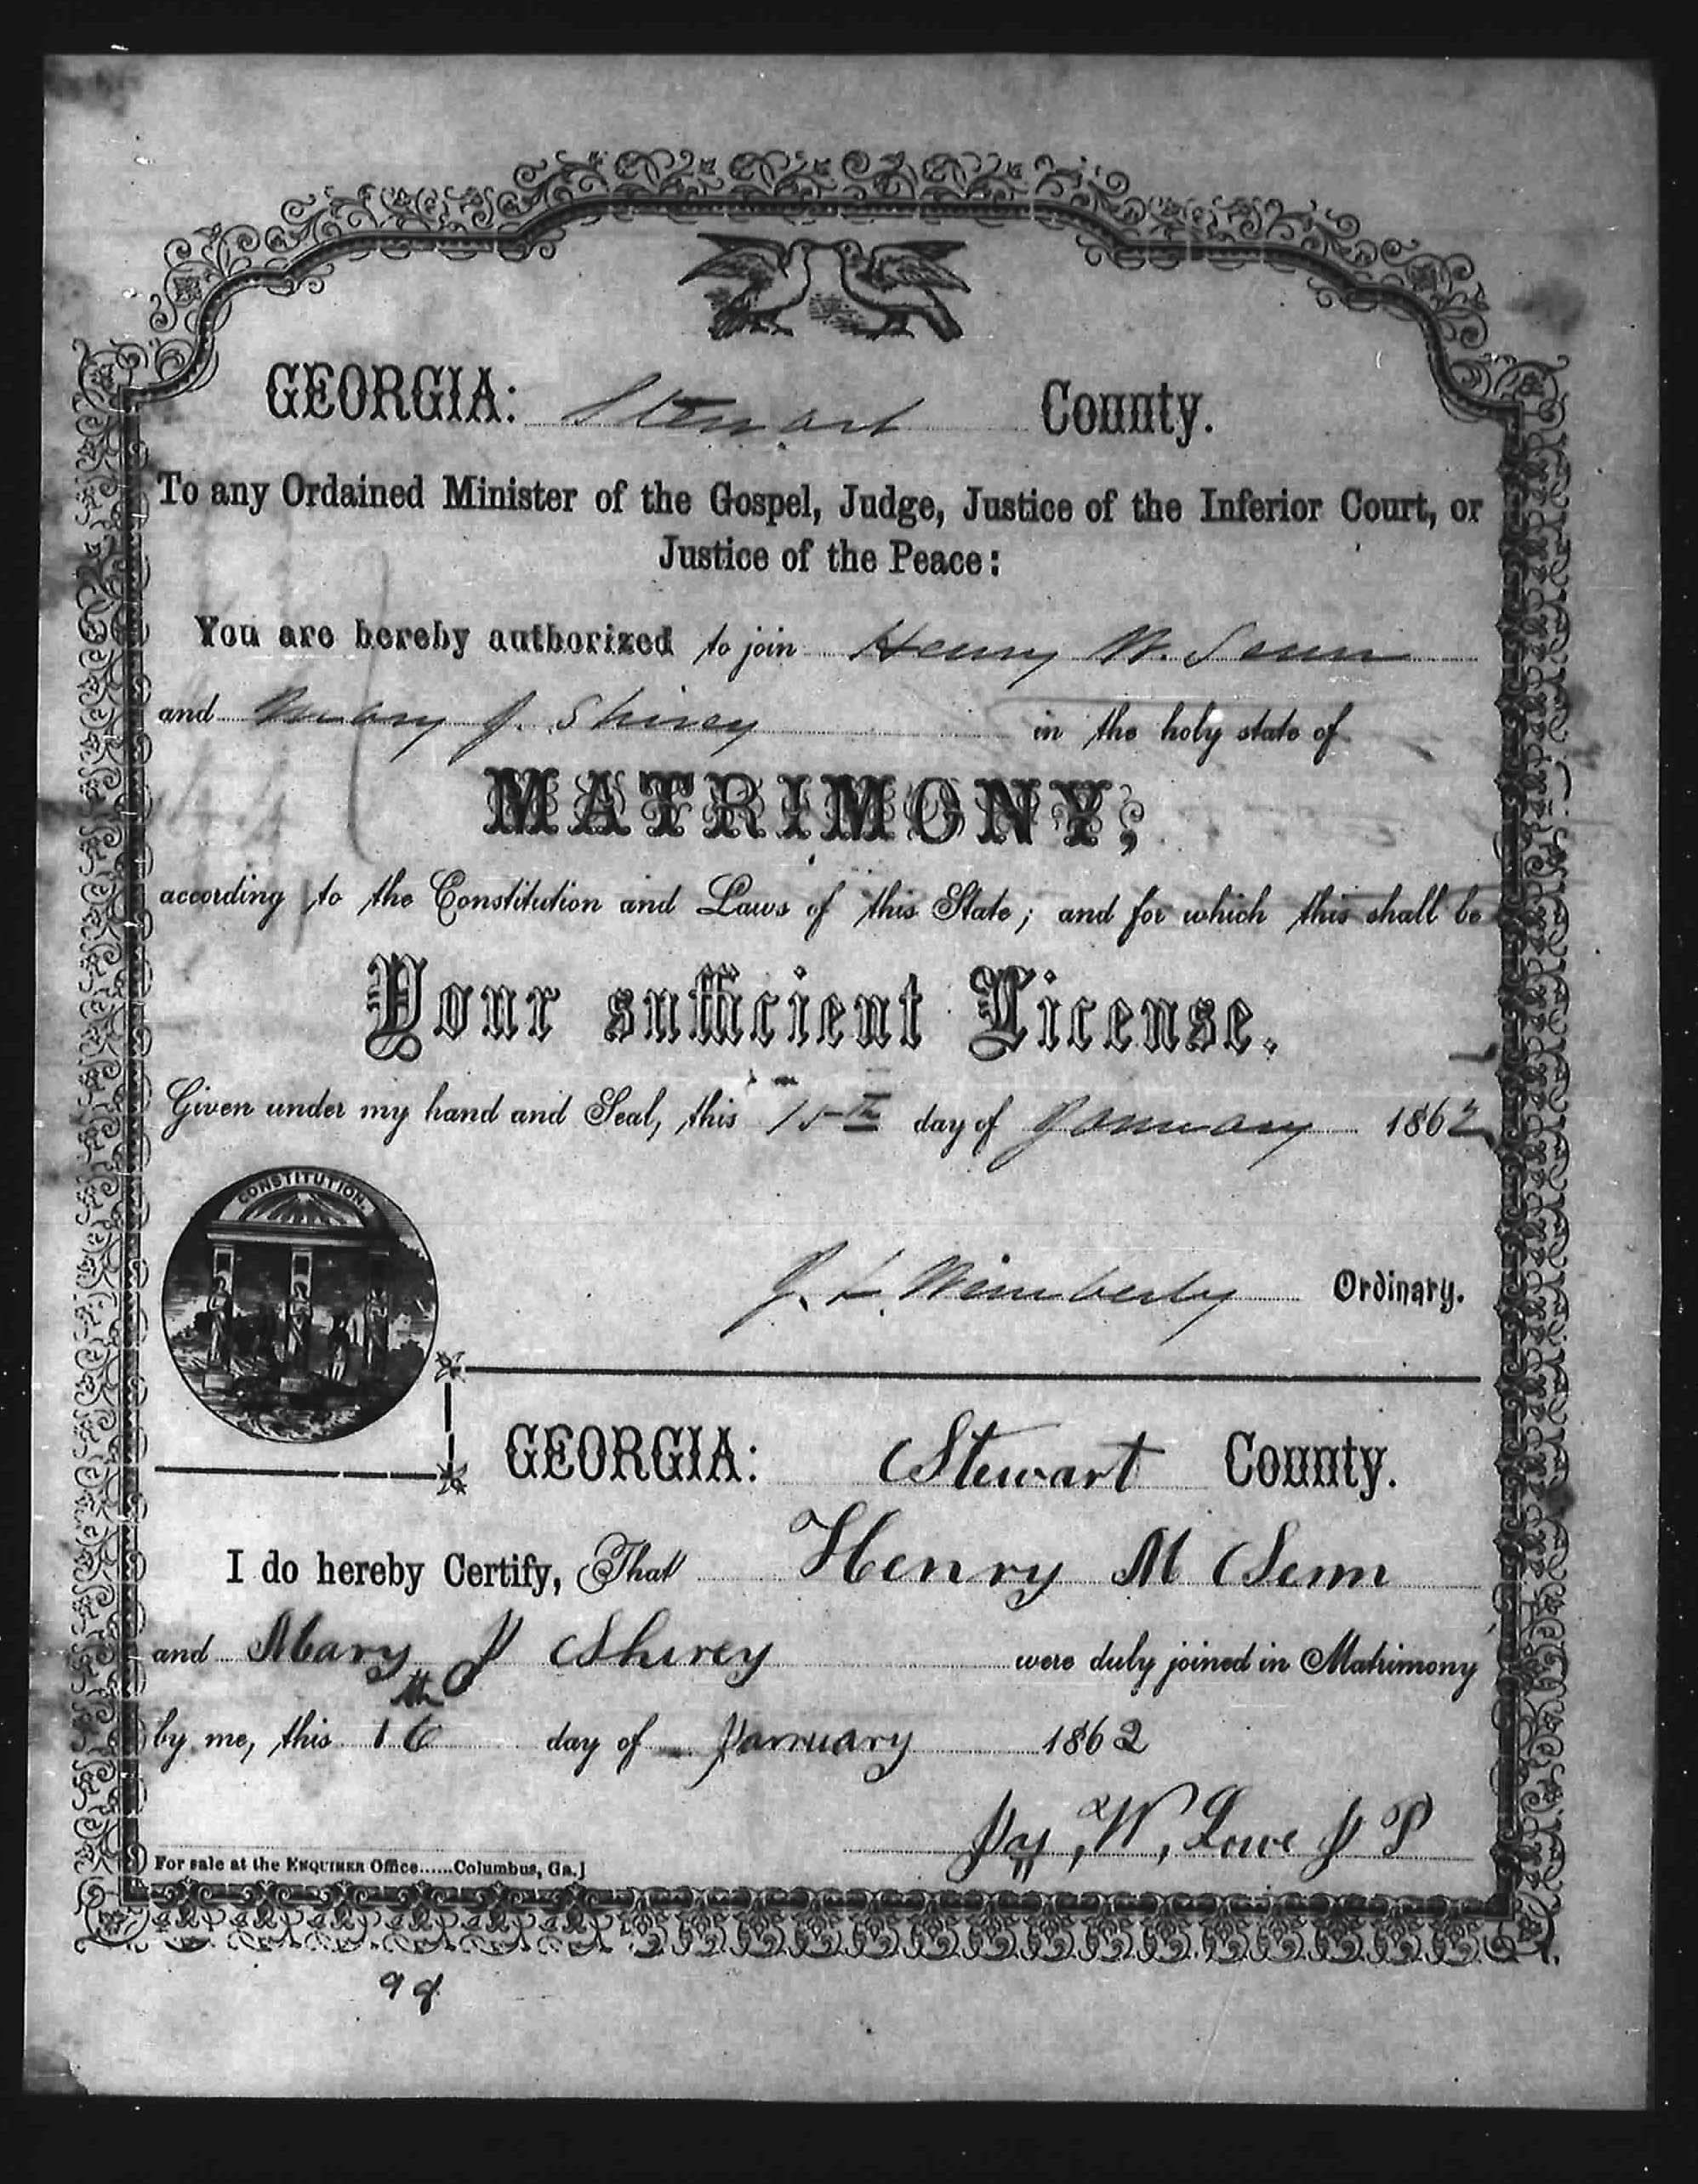 GEORGIA: Stewart County.
To any Ordained Minister of the Gospel, Judge, Justice of the Inferior Court, or
Justice of the Peace:
You are hereby authorized to join Henry M. Senn
and Mary J. Shirey in the holy state of
MATRIMONY;
according to the Constitution and Laws of this State; and for which this shall be
Your sufficient License.
Given under my hand and Seal, this 15th day of January 1862
CONSTITUTION
J. L. Wimberly Ordinary.
GEORGIA: Stewart County.
I do hereby Certify, That Henry M Senn
and Mary J Shirey were duly joined in Matrimony
by me, this 16th day of January 1862
W, Lowe J P
For sale at the ENQUIRER Office......Columbus, Ga.]